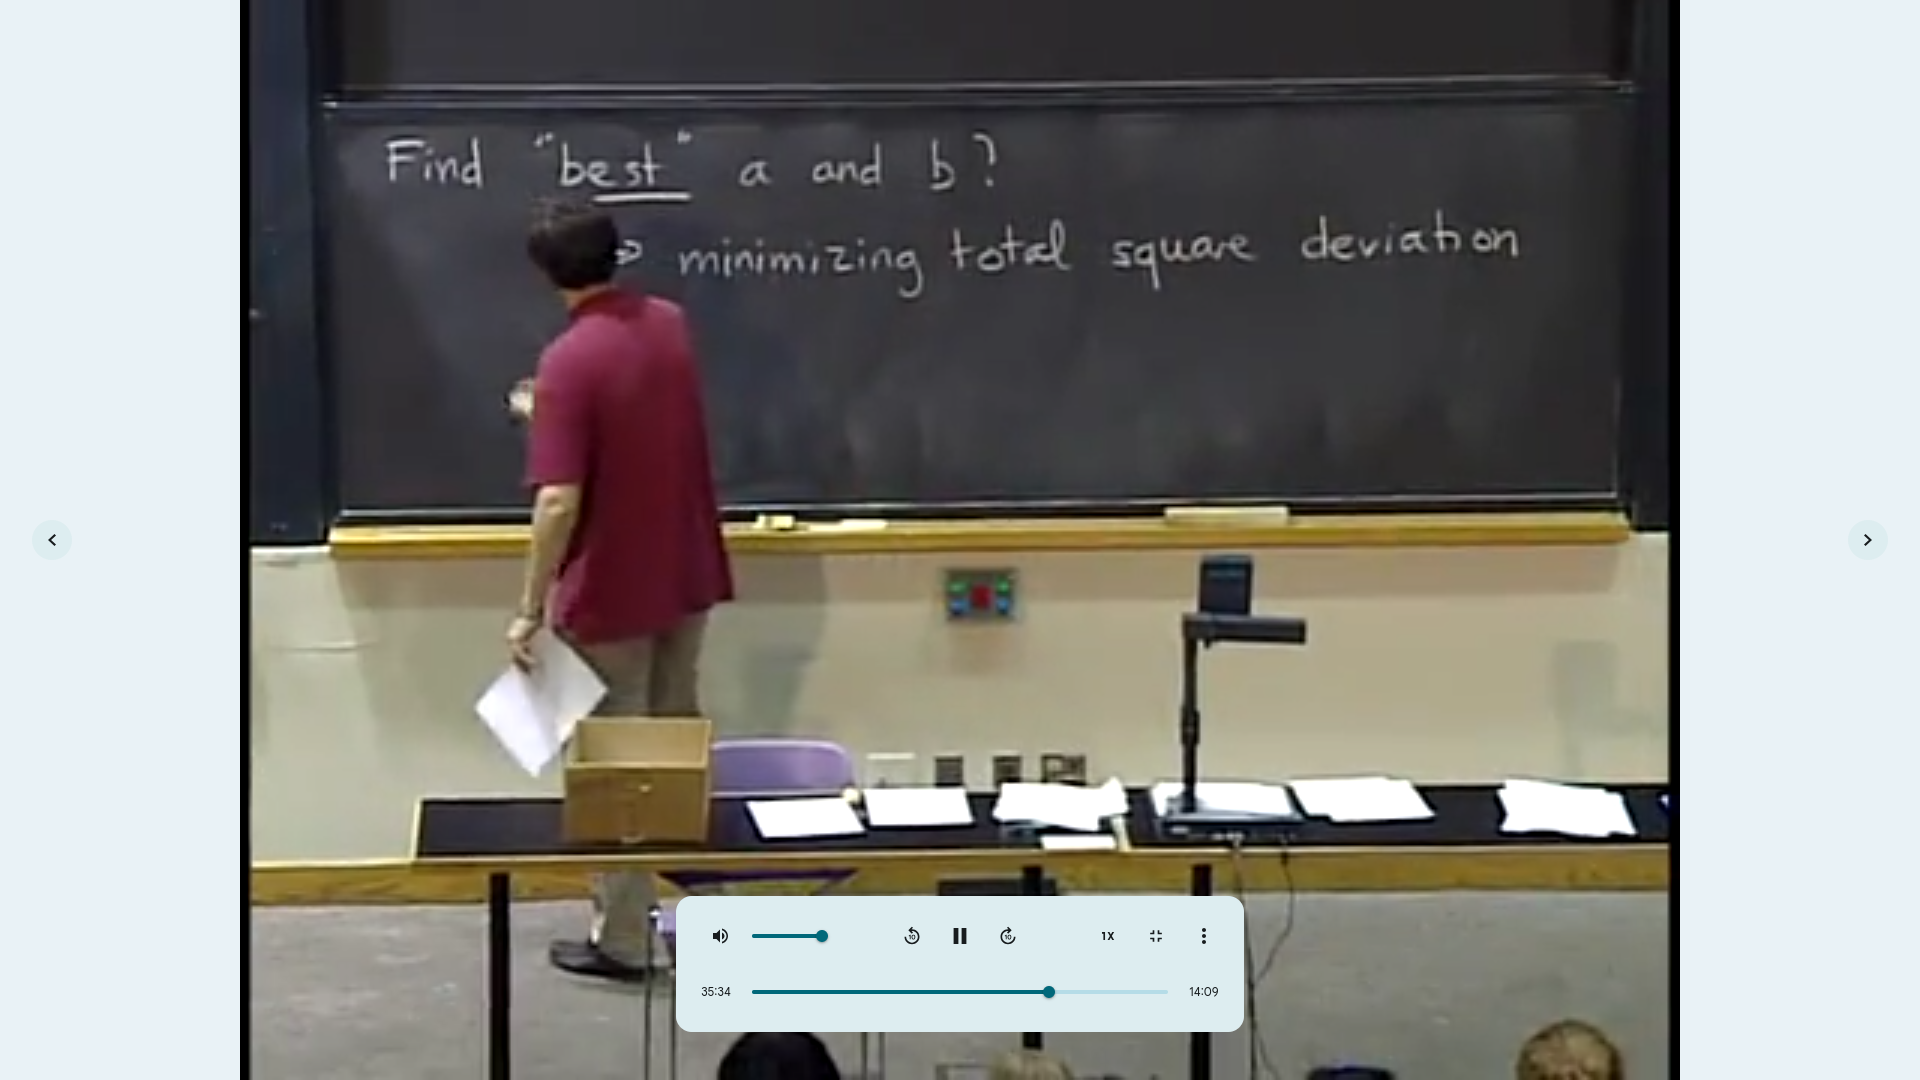 Find "best" a and b?
⇒ minimizing total square deviation
1X
35:34
14:09